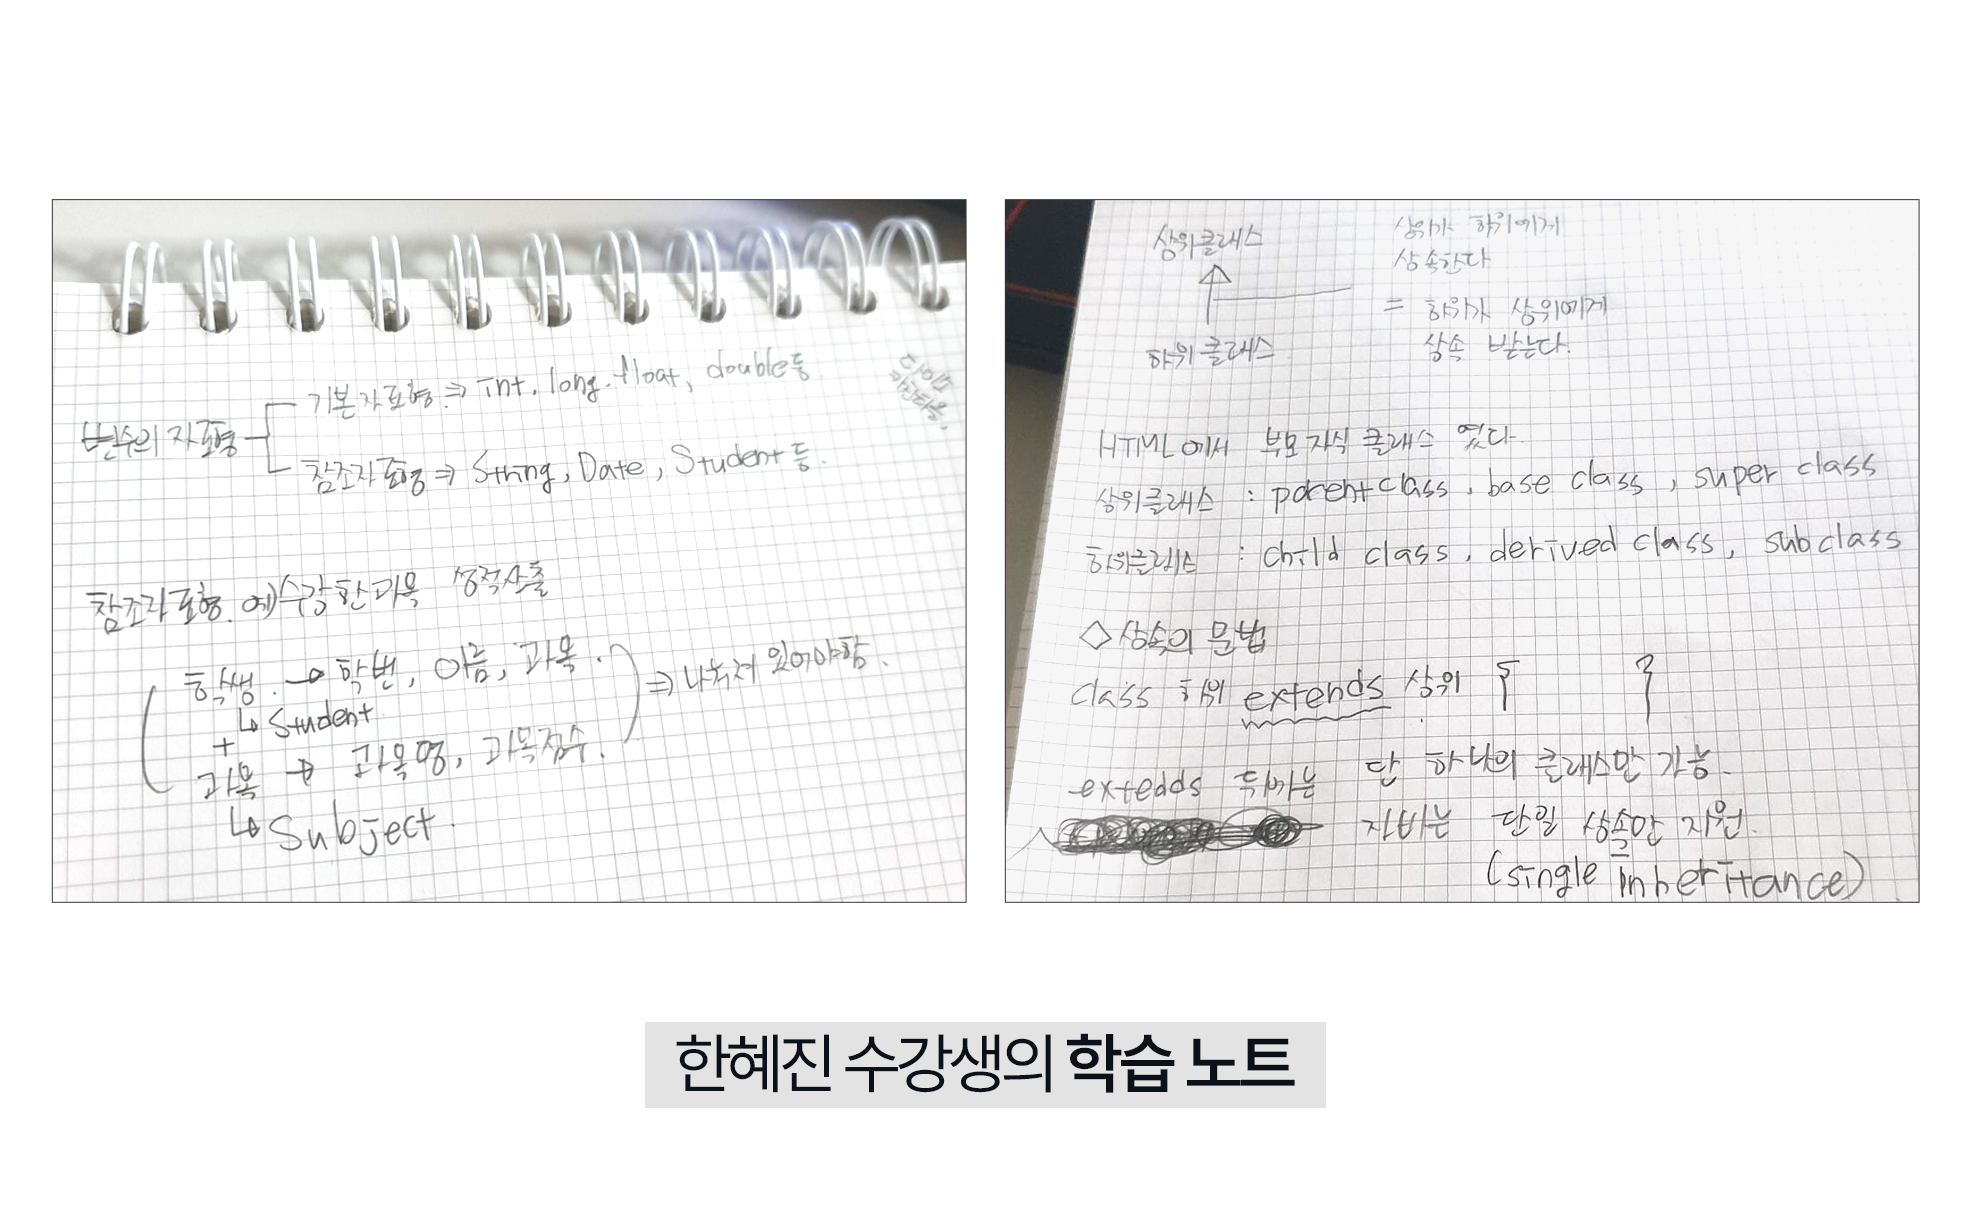 변수의 자료형
기본자료형 ⇒ int, long, float, double 등
참조자료형 ⇒ String, Date, Student 등.
참조자료형. 예) 수강한 과목 성적산출
학생 → 학번, 이름, 과목.
↳ Student
+
과목 → 과목명, 과목점수.
↳ Subject.
⇒ 나눠져 있어야함.
상위클래스
하위클래스
상위가 하위에게
상속한다
= 하위가 상위에게
상속 받는다.
HTML에서 부모 자식 클래스 였다.
상위클래스 : parent class, base class, super class
하위클래스 : child class, derived class, subclass
◇상속의 문법
class 하위 extends 상위 { }
뒤에는 단 하나의 클래스만 가능.
자바는 단일 상속만 지원.
(single inheritance)
한혜진 수강생의 학습 노트